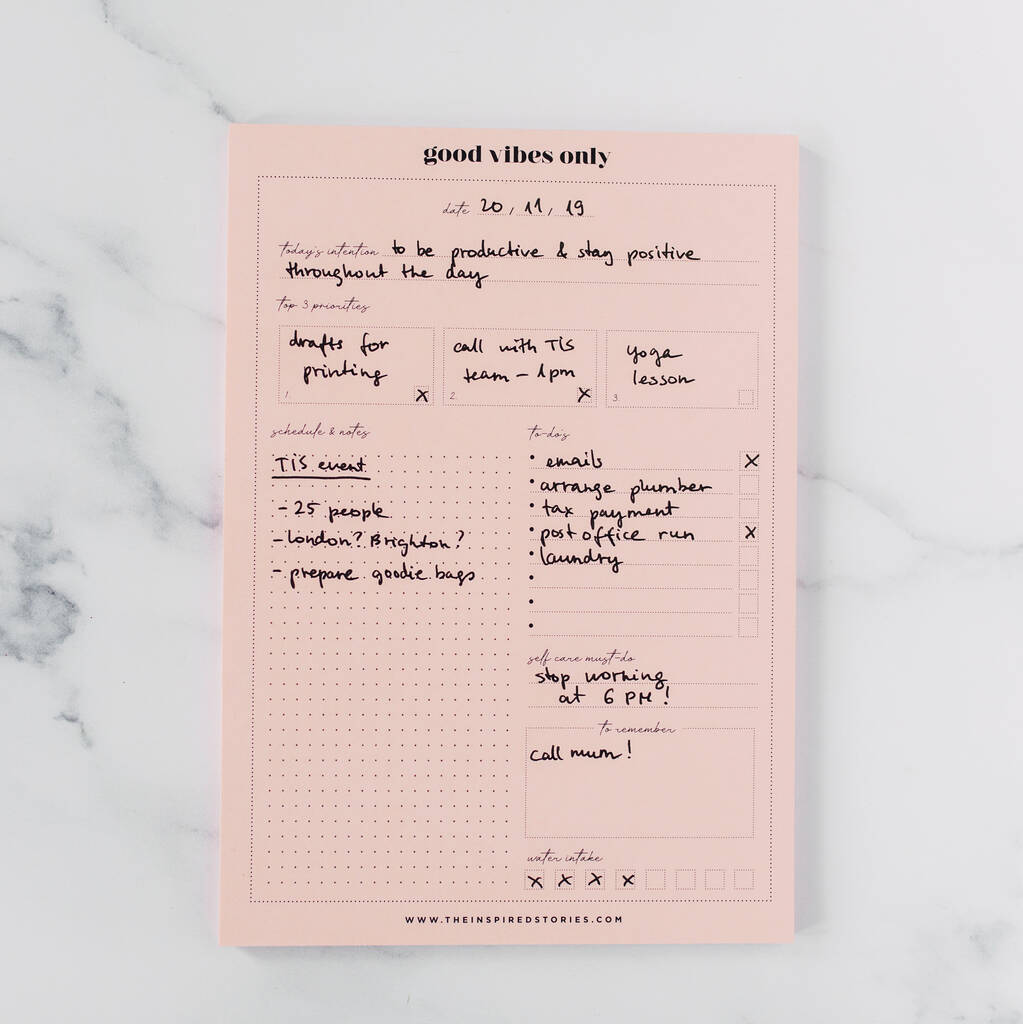 good vibes only
date 20, 11, 19
today's intention to be productive & stay positive
throughout the day
top 3 priorities
drafts for
printing
1.
call with TiS
team - 1pm
2.
yoga
lesson
3.
schedule & notes
TiS event
- 25 people
- London? Brighton?
- prepare goodie bags
to-do's
• emails
• arrange plumber
• tax payment
• post office run
• laundry
•
•
•
self care must-do
stop working
at 6 PM!
to remember
call mum!
water intake
WWW.THEINSPIREDSTORIES.COM